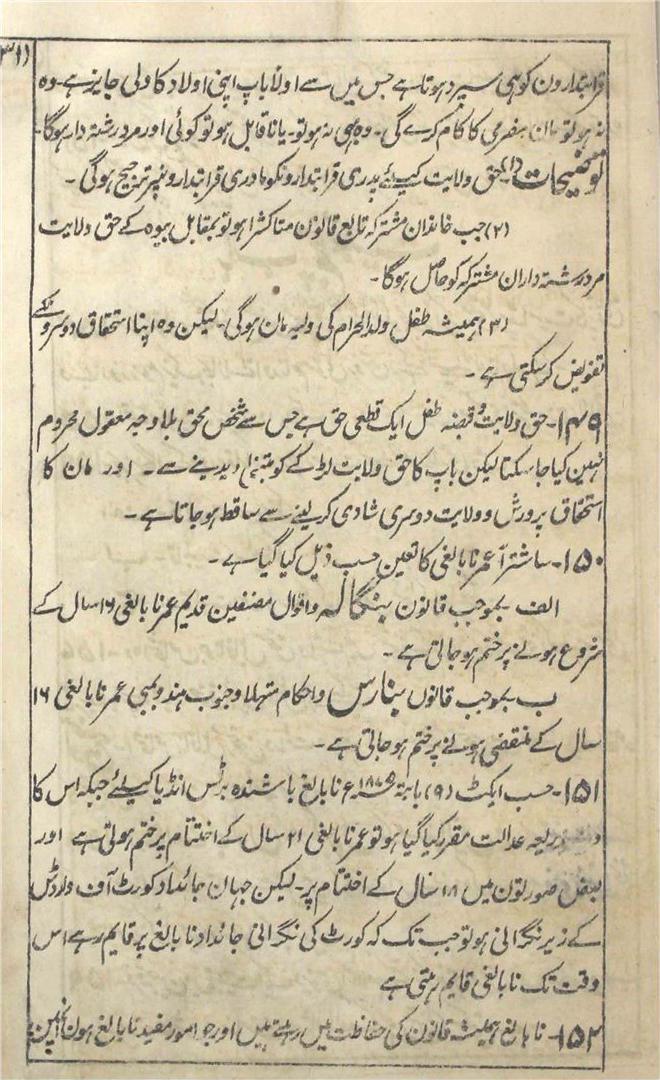 (۳۱
قرابتدارون کوہی سپرد ہوتا ہے جس میں سے اولاً باپ اپنی اولاد کا ولی جایز ہے۔ وہ
نہ ہو تو مان کام کرے گی۔ وہ بھی نہ ہو تو۔ یا ناقابل ہو تو کوئی اور مرد رشتہ دار ہوگا۔
توضیحات (۱) حق ولایت کیلئے پدری قرابتدارونکو مادری قرابتدارونپر ترجیح ہوگی۔
(۲) جب خاندان مشترکہ تابع قانون متاکشرا ہو تو بمقابل بیوہ کے حق ولایت
مرد رشتہ داران مشترکہ کو حاصل ہوگا۔
(۳) ہمیشہ طفل ولدالحرام کی ولیہ مان ہوگی۔ لیکن وہ اپنا استحقاق دوسرونکے
تفویض کر سکتی ہے۔
۱۴۹۔ حق ولایت و قبضہ طفل ایک قطعی حق ہے جس سے شخص محق بلا وجہ معقول محروم
نہین کیا جا سکتا لیکن باپ کا حق ولایت لڑکے کو متبنیٰ دیدینے سے۔ اور مان کا
استحقاق پرورش و ولایت دوسری شادی کر لینے سے ساقط ہو جاتا ہے۔
۱۵۰۔ ساشتراً عمر نابالغی کا تعین حسب ذیل کیا گیا ہے۔
الف بموجب قانون بنگالہ و اقوال مصنفین قدیم عمر نابالغی ۱۶ سال کے
شروع ہونے پر ختم ہو جاتی ہے۔
ب بموجب قانون بنارس و احکام متہلا و جنوب ہند و بمبی عمر نابالغی ۱۶
سال کے منقضی ہونے پر ختم ہو جاتی ہے۔
۱۵۱۔ حسب ایکٹ (۹) بابتہ ۱۸۷۵ء نابالغ باشندہ برٹس انڈیا کیلئے جبکہ اس کا
ولی بذریعہ عدالت مقرر کیا گیا ہو تو عمر نابالغی ۲۱ سال کے اختتام پر ختم ہوتی ہے اور
بعض صورتون میں ۱۸ سال کے اختتام پر۔ لیکن جہان جائداد کورٹ آف وارڈس
کے زیر نگرانی ہو تو جب تک کہ کورٹ کی نگرانی جائداد نابالغ پر قایم رہے اس
وقت تک نابالغی قایم رہتی ہے
۱۵۲۔ نابالغ ہمیشہ قانون کی حفاظت میں رہتے ہیں اور جو امور مفید نابالغ ہون